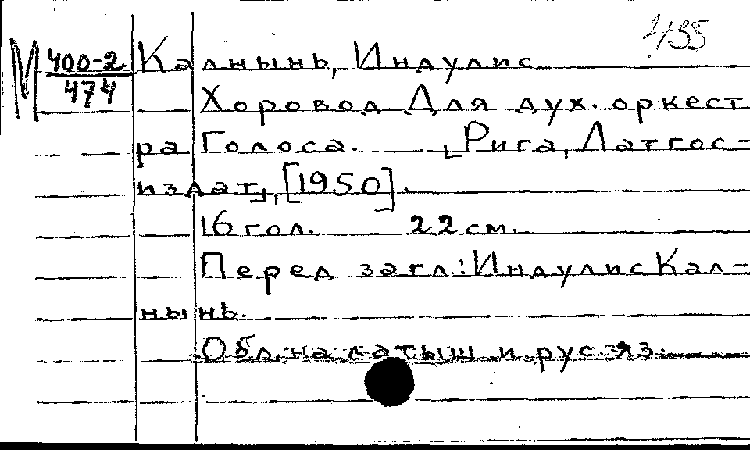 1/55
М 400-2
474
Калнынь, Индулис
Хоровод Для дух. оркест
ра Голоса. [Рига, Латгос-
издат], [1950].
16 гол. 22 см.
Перед загл: Индулис Кал-
нынь.
Обл. на латыш и рус яз.